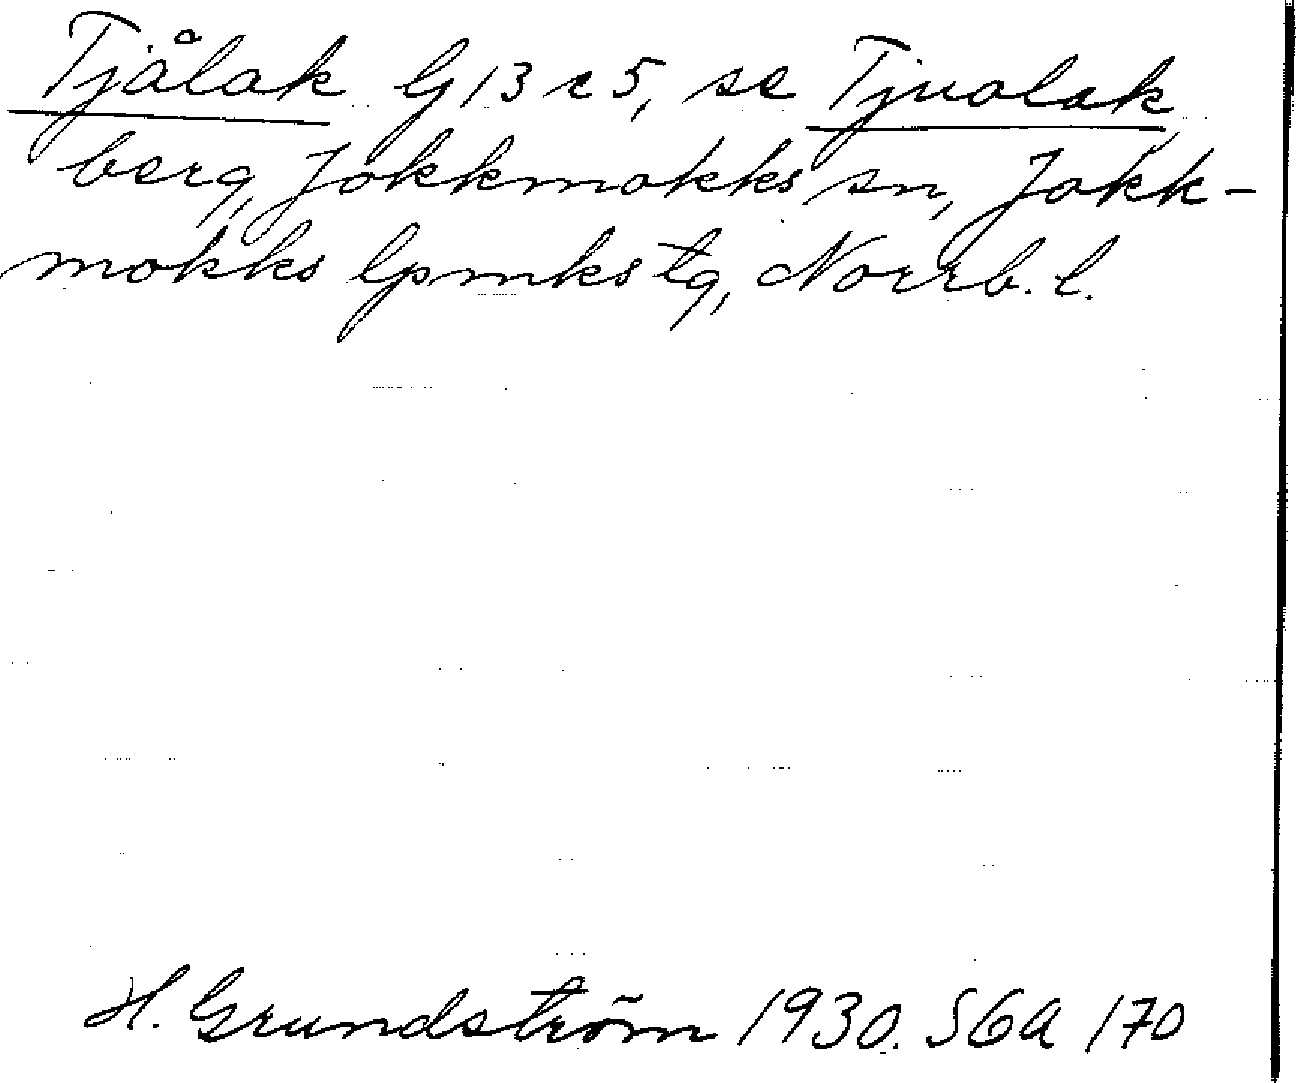 Tjålak G 13 c 5, se Tjualak
berg, Jokkmokks sn, Jokk-
mokks lpmks tg, Norrb. l.
H. Grundström 1930. S6a 170